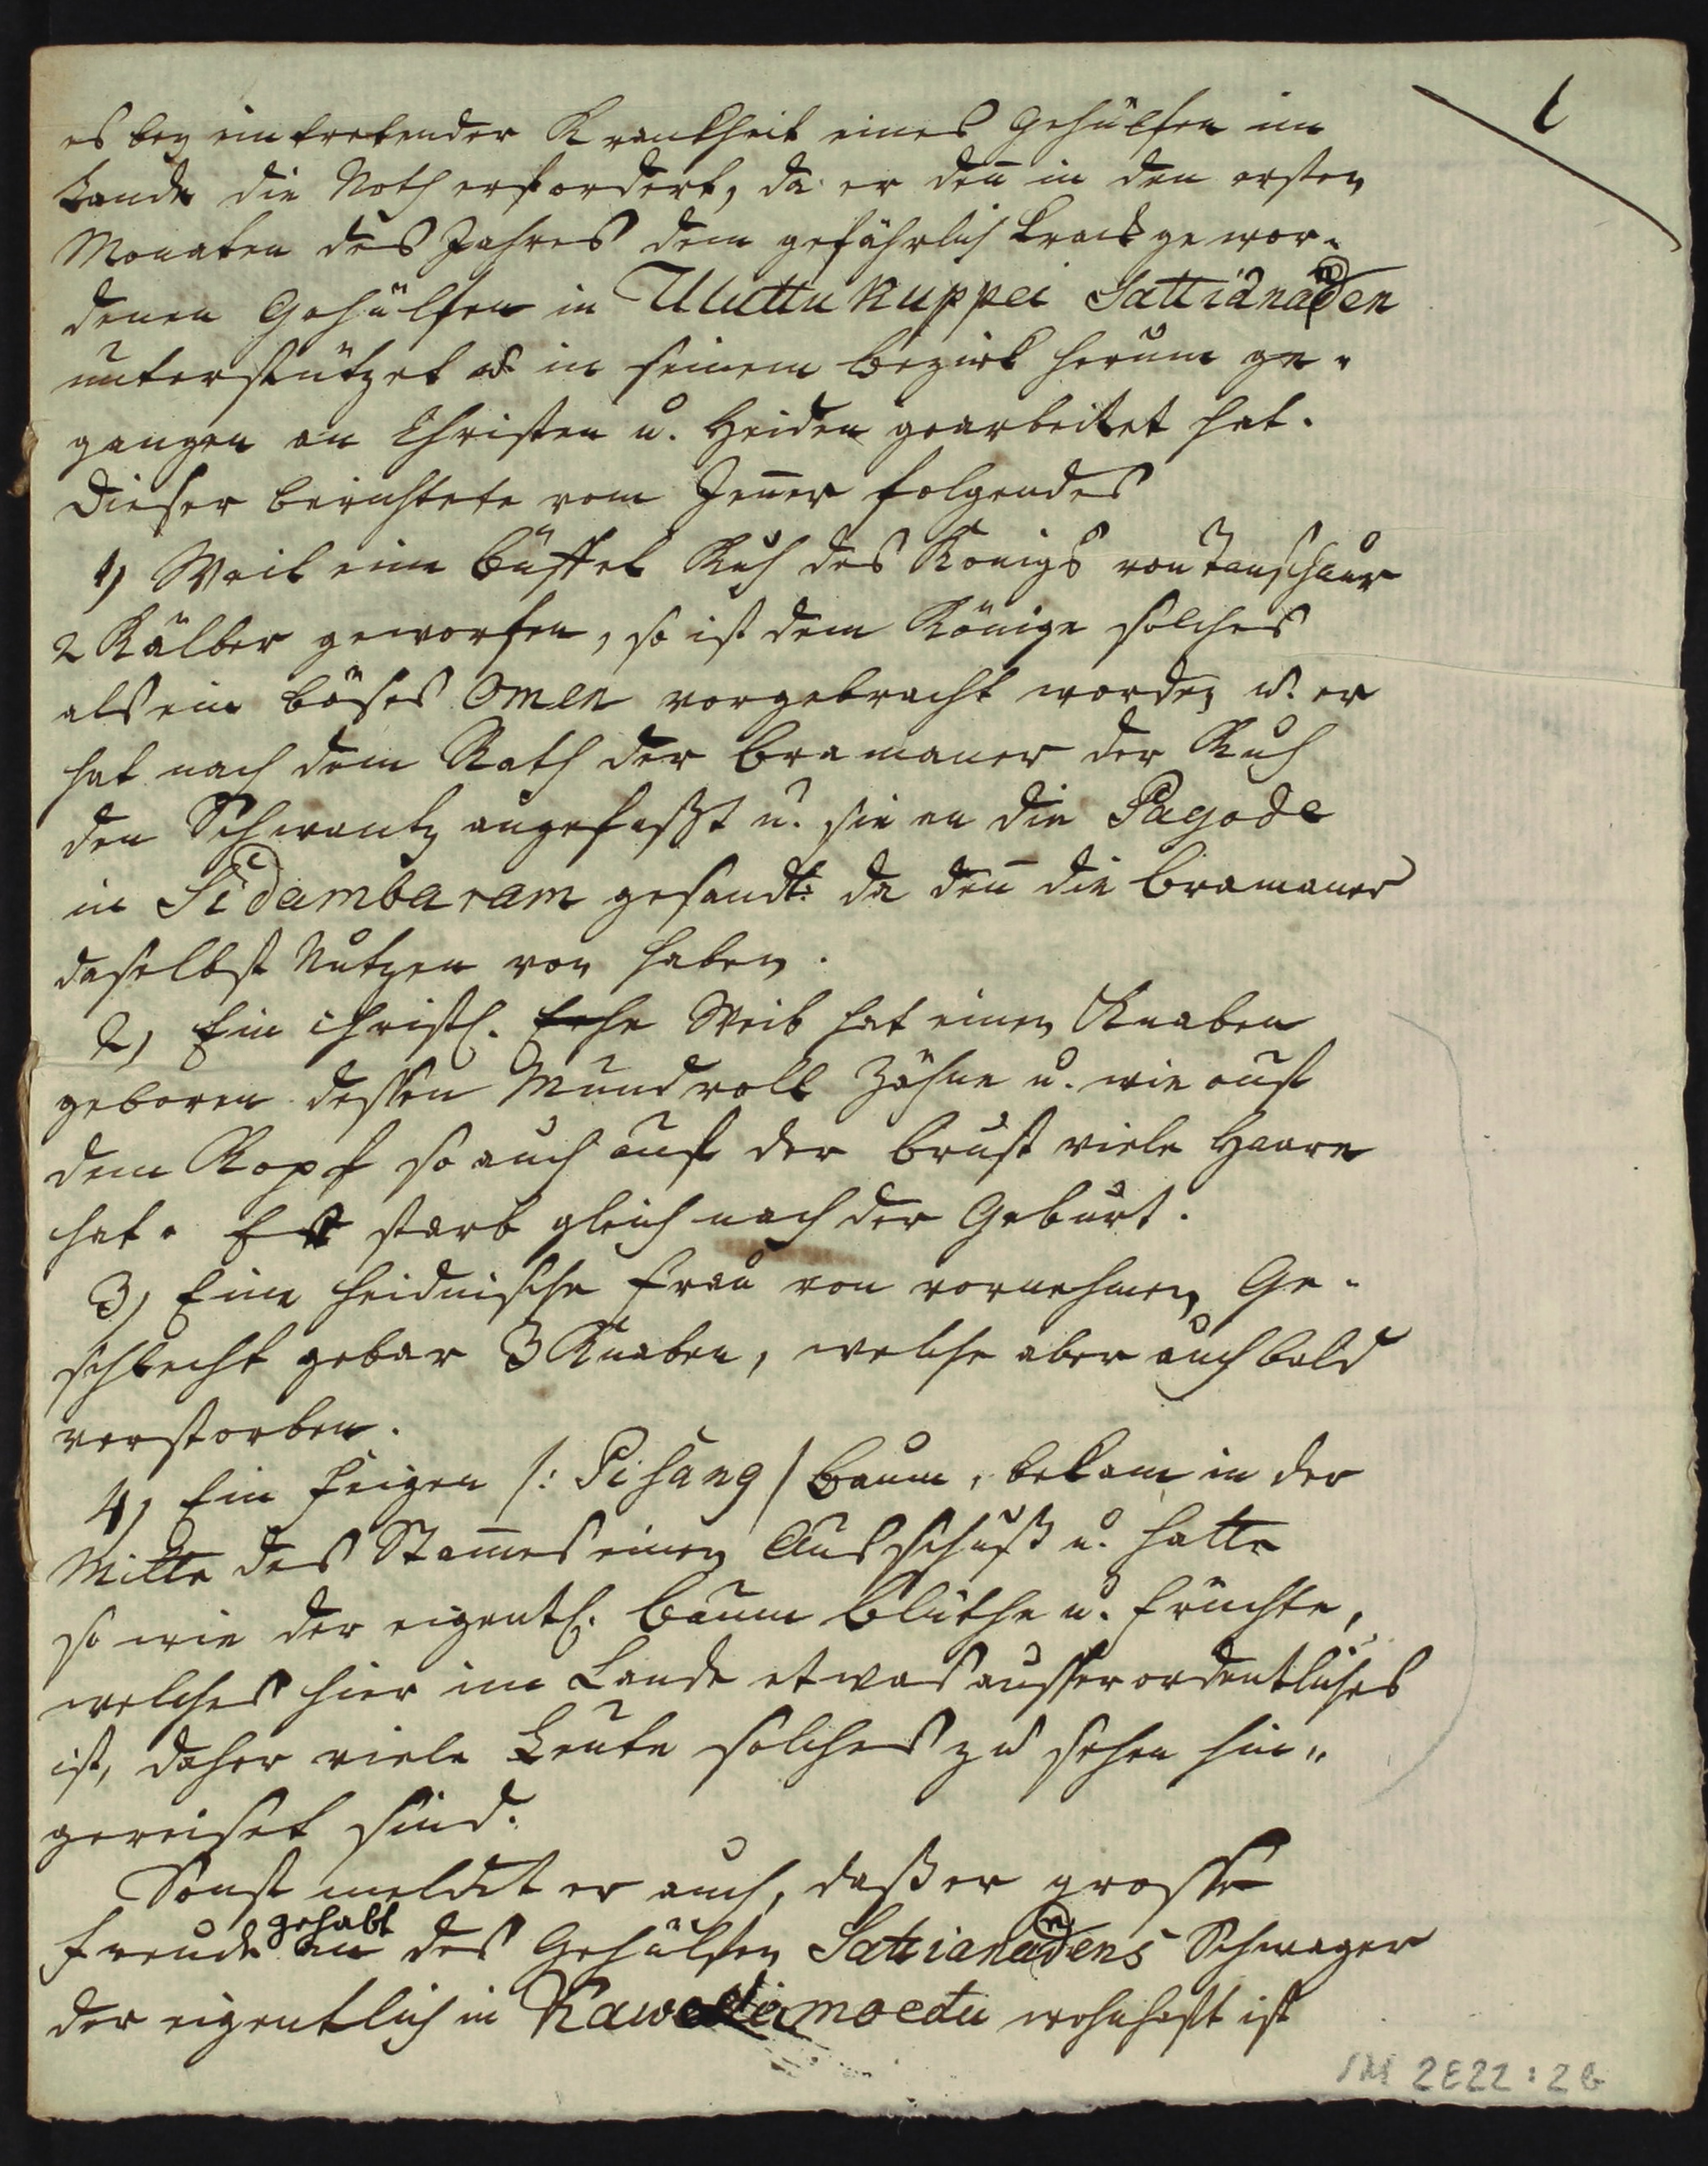 es bey eintretender Krankheit eines Gehülfen im
Lande die Noth erfordert, da er deñ in den ersten
Monaten des Jahres dem gefährlich krank gewor-
denen Gehülfen in Uluttukuppei Sattianaden
unterstützet u. in seinem Bezirk herum ge-
gangen an Christen u. Heiden gearbeitet hat.
Dieser berichtete vom Jeñer folgendes
1) Weil eine Büffel Kuh des Königs von Tanschaur
2 Kälber geworfen, so ist dem Könige solches
als ein böses Omen vorgebracht worden u. er
hat nach dem Rath der Bramaner der Kuh
den Schwantz angefaßt u. sie an die Pagode
in Sidambaram gesandt: da deñ die Bramaner
daselbst Nutzen von haben.
2) Ein christl. Weib hat einen Knaben
geboren dessen Mund voll Zähne u. wie auf
dem Kopf so auch auf der Brust viele Haare
hat. Er starb gleich nach der Geburt.
3) Eine heidnische Frau von vornehmen Ge-
schlecht gebar 3 Knaben, welche aber auch bald
verstorben.
4) Ein Feigen /: Pisang / Baum, bekam in der
Mitte des Stam̄es einen Ausschuß u. hatte
so wie der eigentl. Baum Blüthe u. Früchte,
welches hier im Lande etwas ausserordentliches
ist, daher viele Leute solches zu sehen hin-
gereiset sind.
Sonst meldet er auch, daß er grosse
Freude gehabt an des Gehülfen Sattianadens Schwager
der eigentlich in moedu wohnhaft ist
2E22:26